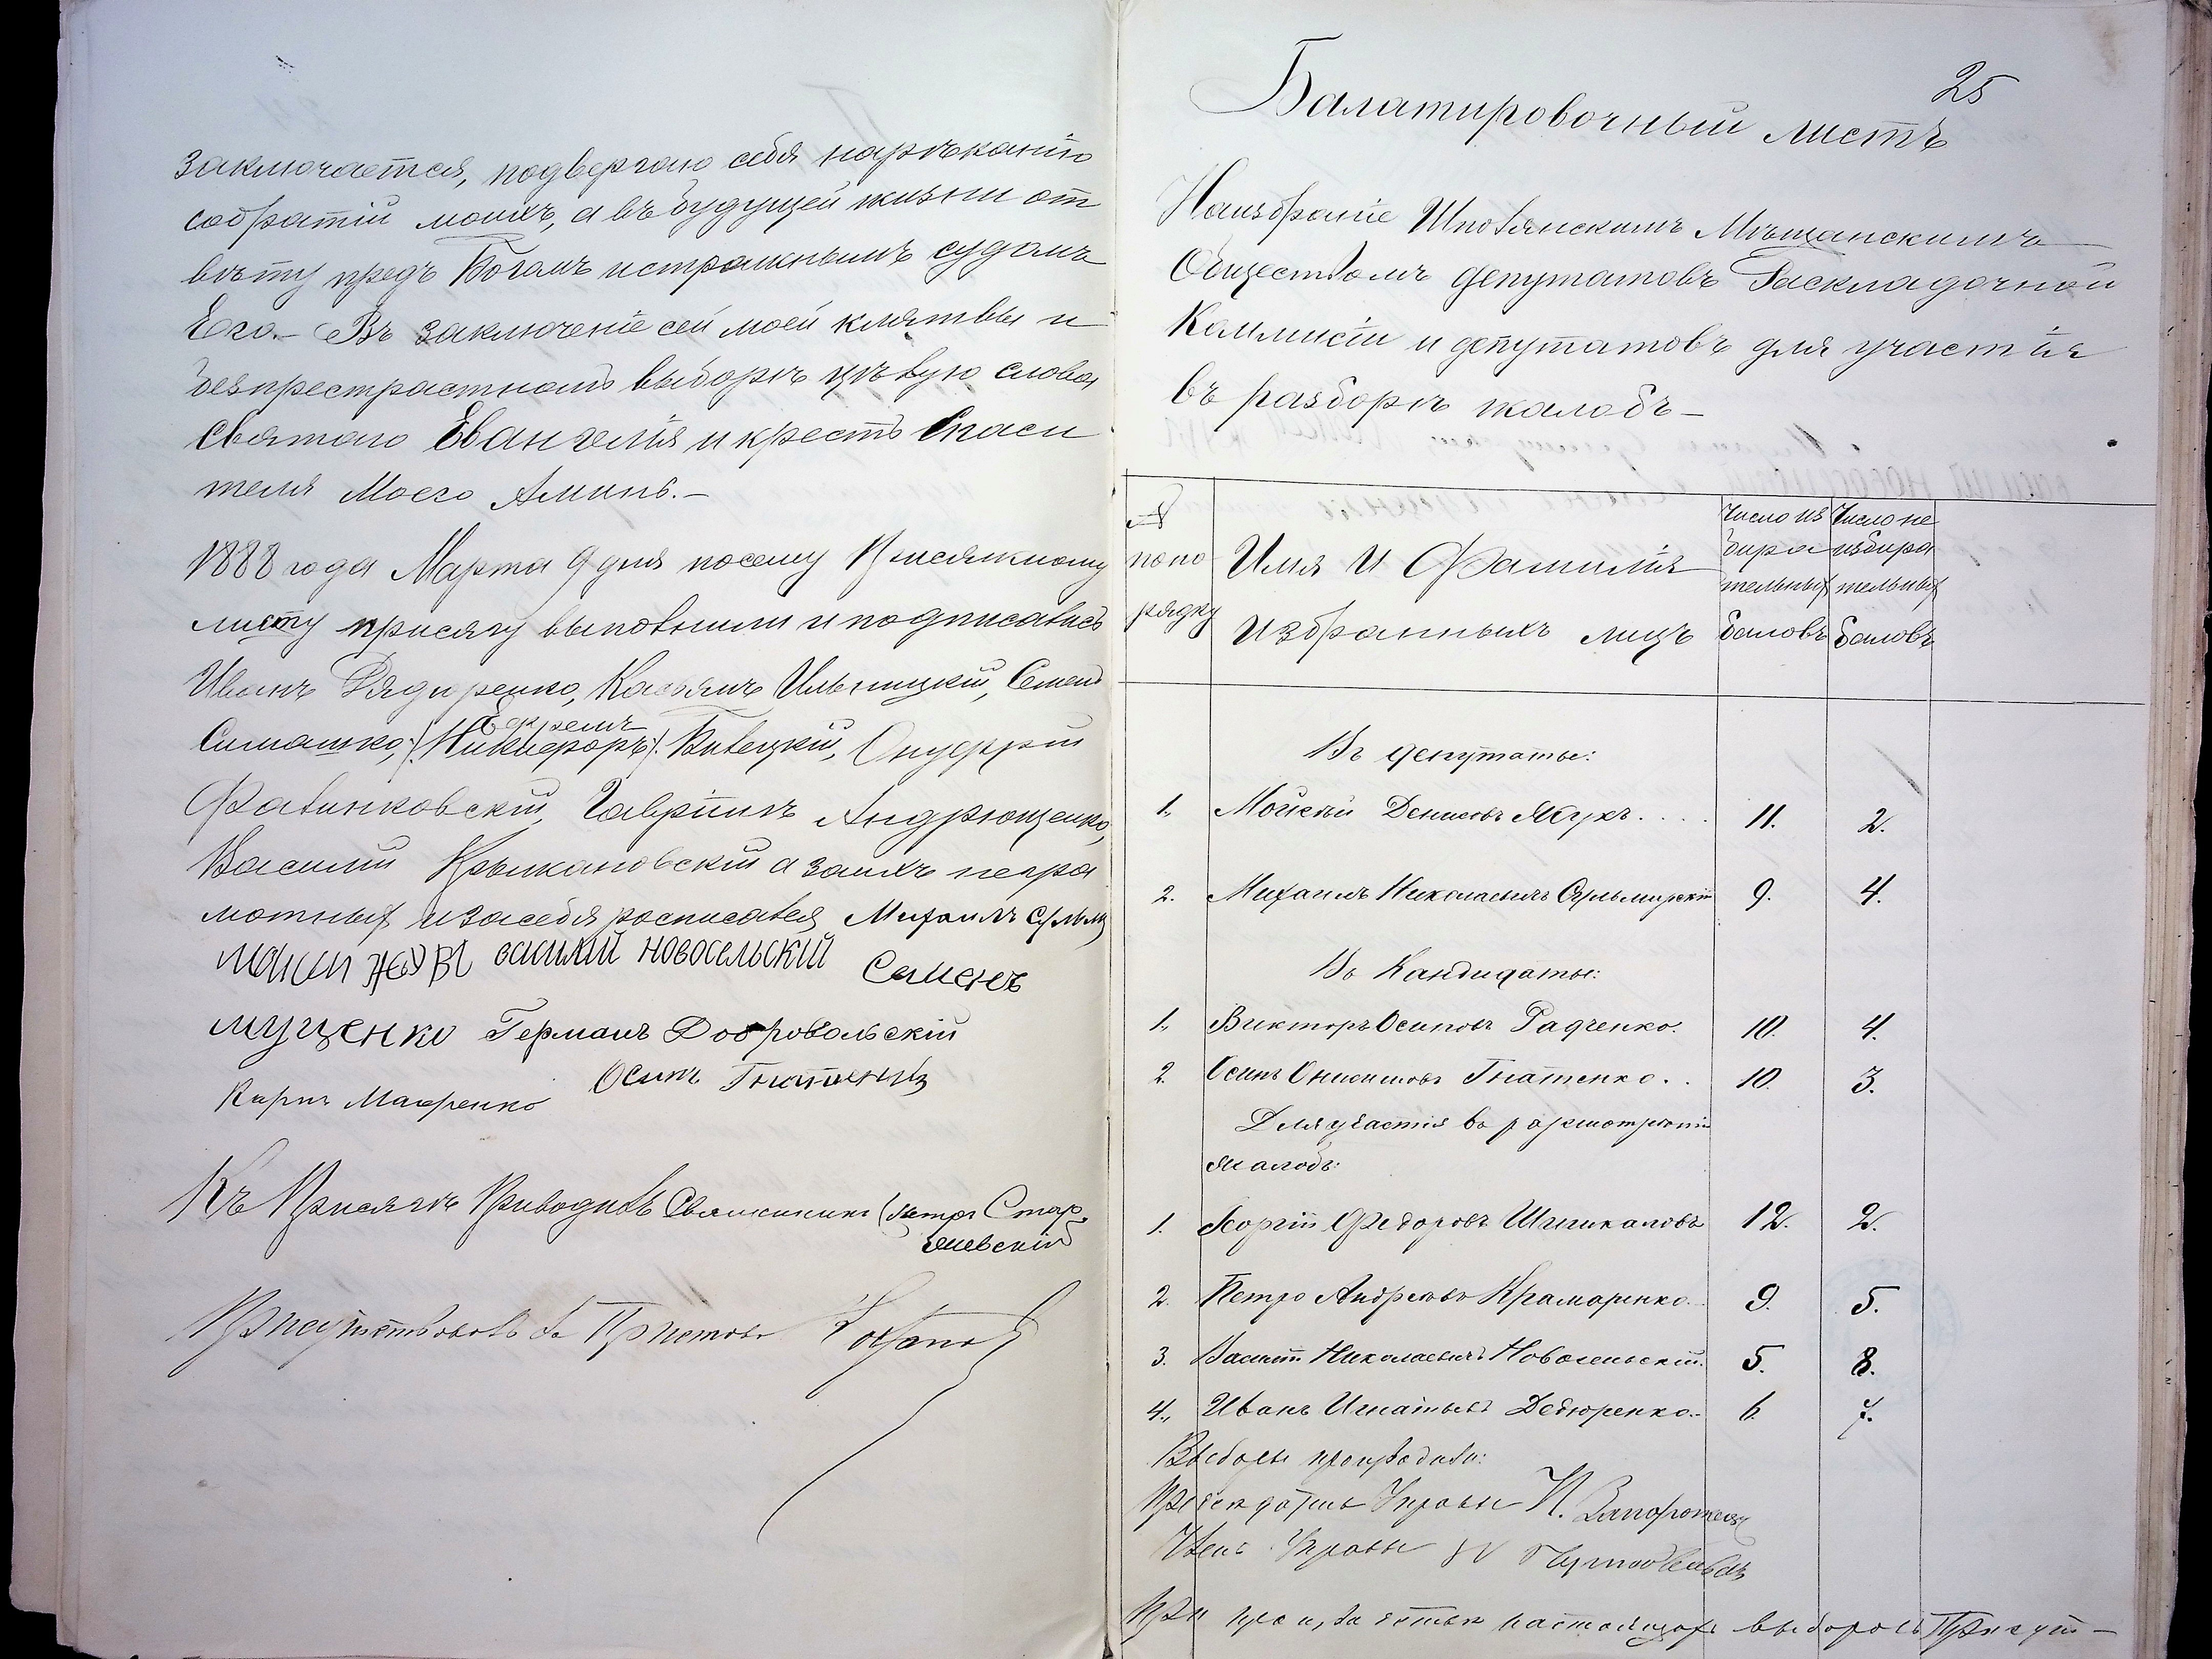 заключается, подвергаю себя нарѣканію
собратій моихъ, а въ будущей жизни от
вѣту предъ Богомъ и страшнымъ судомъ
Его.- Въ заключеніе сей моей клятвы и
безпрестрастномъ выборѣ цѣлую слова
Святаго Евангелія и крестъ Спаси
теля Моего Аминь.-
1888 года Марта 9 дня посему Присяжному
листу присягу выполнили и подписались
Иванъ Касьянъ Ильницкій, Семенъ
Ефремъ
Симашко, (Никифоръ) Билецкій, Онуфрій
Фалинковскій, Гавріилъ Андрющенко,
Василій Крыжановскій а за ихъ негра
мотныхъ и за себя росписался Михаилъ
василій новосельскій Семенъ
мущенко Германъ Добровольскій
Карпъ Осипъ
Къ Присягѣ Приводилъ Священникъ Петръ
Присутствовалъ Приставъ
25
Балатировочный листъ
На избраніе Шполянскимъ Мѣщанскимъ
Обществомъ депутатовъ Раскладочной
Коммисіи и депутатовъ для участія
въ разборѣ жалобъ-
№
по по
рядку
Имя И Фамилія
избранныхъ лицъ
Число из
бира
тельныхъ
баловъ
Число не
избира
тельныхъ
баловъ
Въ депутаты:
1. Мойсѣй Денисовъ Жукъ.... 11. 2.
2. Михаилъ Николаевичъ 9. 4.
Въ Кандидаты:
1. Викторъ Осиповъ Радченко. 10. 4.
2. Осипъ Онисимовъ Гнатенко.. 10. 3.
Для участія въ разсмотреніи
жалобъ:
1. Георгій Федоровъ Шишкаловъ 12. 2.
2. Петро Андреевъ Крамаренко. 9. 5.
3. Василій Николаевичъ Новосельскій. 5. 8.
4. Иванъ Игнатьевъ Дедюренко.- 6. 7.
Выборы производили:
Предсѣдатель Управы И. Запорожецъ
Членъ Управы
При настоящихъ выборовъ Присут-